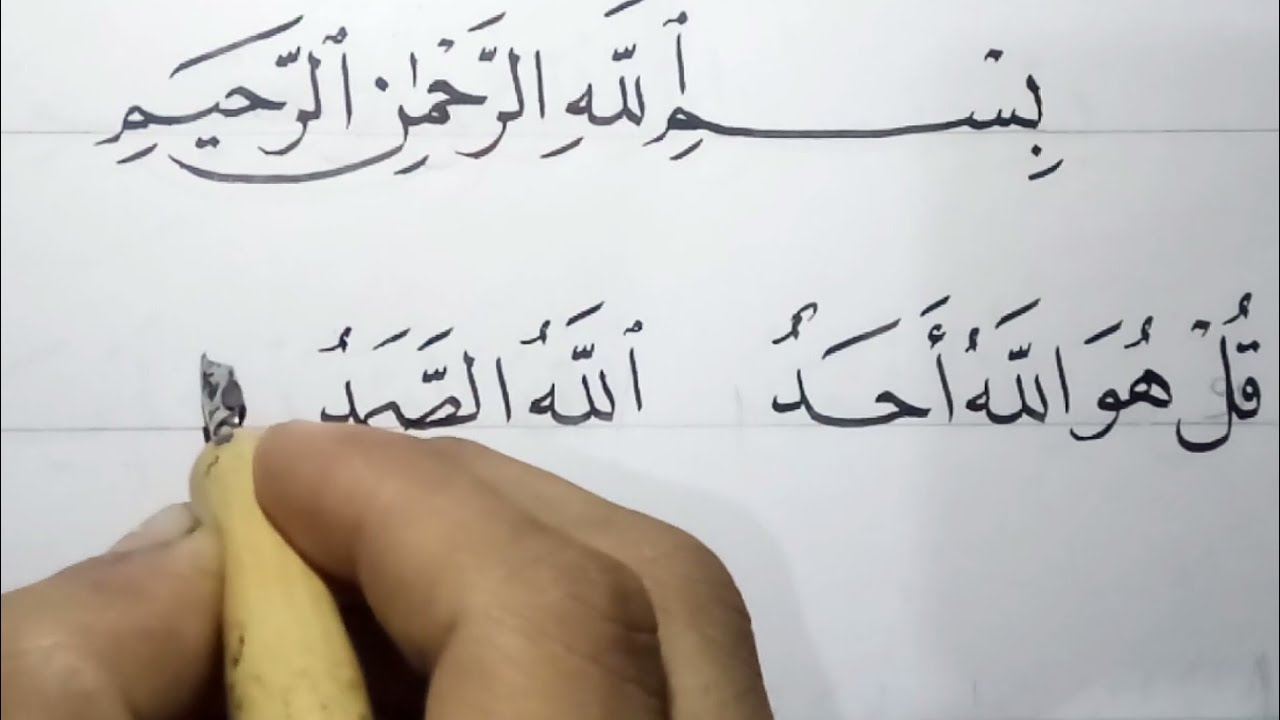 بِسْمِ ٱللَّهِ الرَّحْمَٰنِ ٱلرَّحِيمِ
قُلْ هُوَ اللَّهُ أَحَدٌ ٱللَّهُ الصَّمَدُ